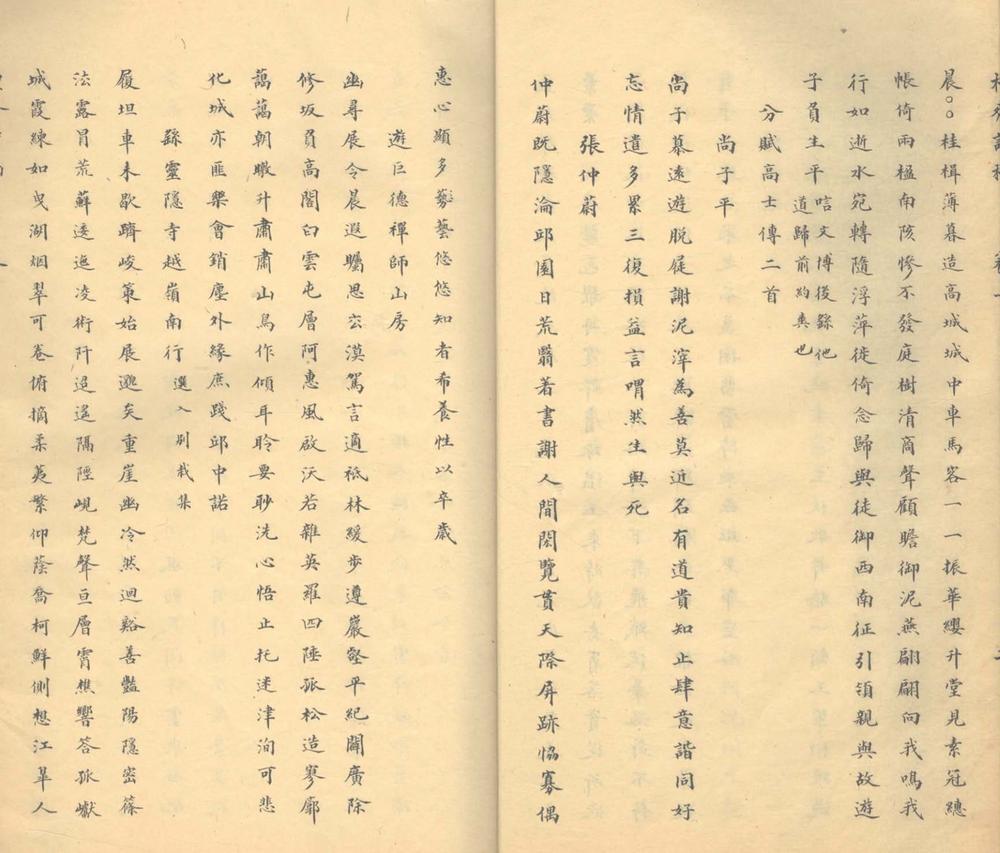 晨○○桂楫薄暮造高城城中車馬客一一振華纓升堂見素冠繐
帳倚兩楹南陔慘不發庭樹清商聲顧瞻御泥燕翩翩向我鳴我
行如逝水宛轉隨浮萍徙倚念歸與徒御西南征引領親與故遊
子負生平
唁文博後錄他
道歸前約與也
分賦高士傳二首
尚子平
尚子慕遠遊脫屣謝泥滓為善莫近名有道貴知止肆意諧同好
忘情遣多累三復損益言喟然生與死
張仲蔚
仲蔚既隱淪邱園日荒翳著書謝人間閎覽貫天際屏跡恊寡偶
惠心顯多蓺藝悠悠知者希養性以卒歲
遊巨德禪師山房
幽尋展令晨遐矚思空漠駕言適祇林緩步遵巖壑平紀開廣除
修坂負高閣白雲屯層阿惠風啟沃若雜英羅四陲孤松造寥廓
藹藹朝暾升肅肅山鳥作傾耳聆要眇洗心悟止托迷津洵可悲
化城亦匪樂會銷塵外緣庶踐邱中諾
繇靈隱寺越嶺南行
選入別裁集
履坦車未歇躋峻策始展邈矣重崖幽冷然迴谿善豔陽隱密篠
法露冒荒蘚逶迤凌術阡迢遙隔陘峴梵聲亘層霄樵響答孤巘
城霞練如曳湖烟翠可卷俯摘柔荑繁仰蔭喬柯鮮側想江皋人